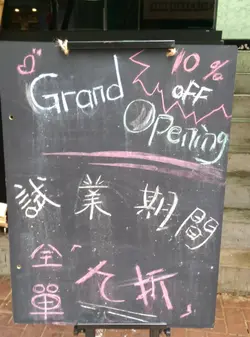 10%
OFF
Grand
Opening
試業期間
全單
九折